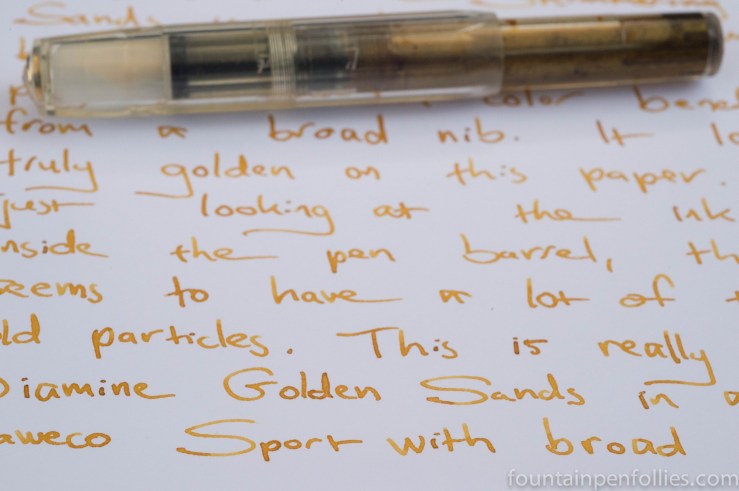 Sands
color bene
from a broad nib. It lo
truly golden on this paper.
just looking at the ink
nside the pen barrel, th
seems to have a lot of t
ld particles. This is really
Diamine Golden Sands in a
aweco Sport with broad
fountainpenfollies.com